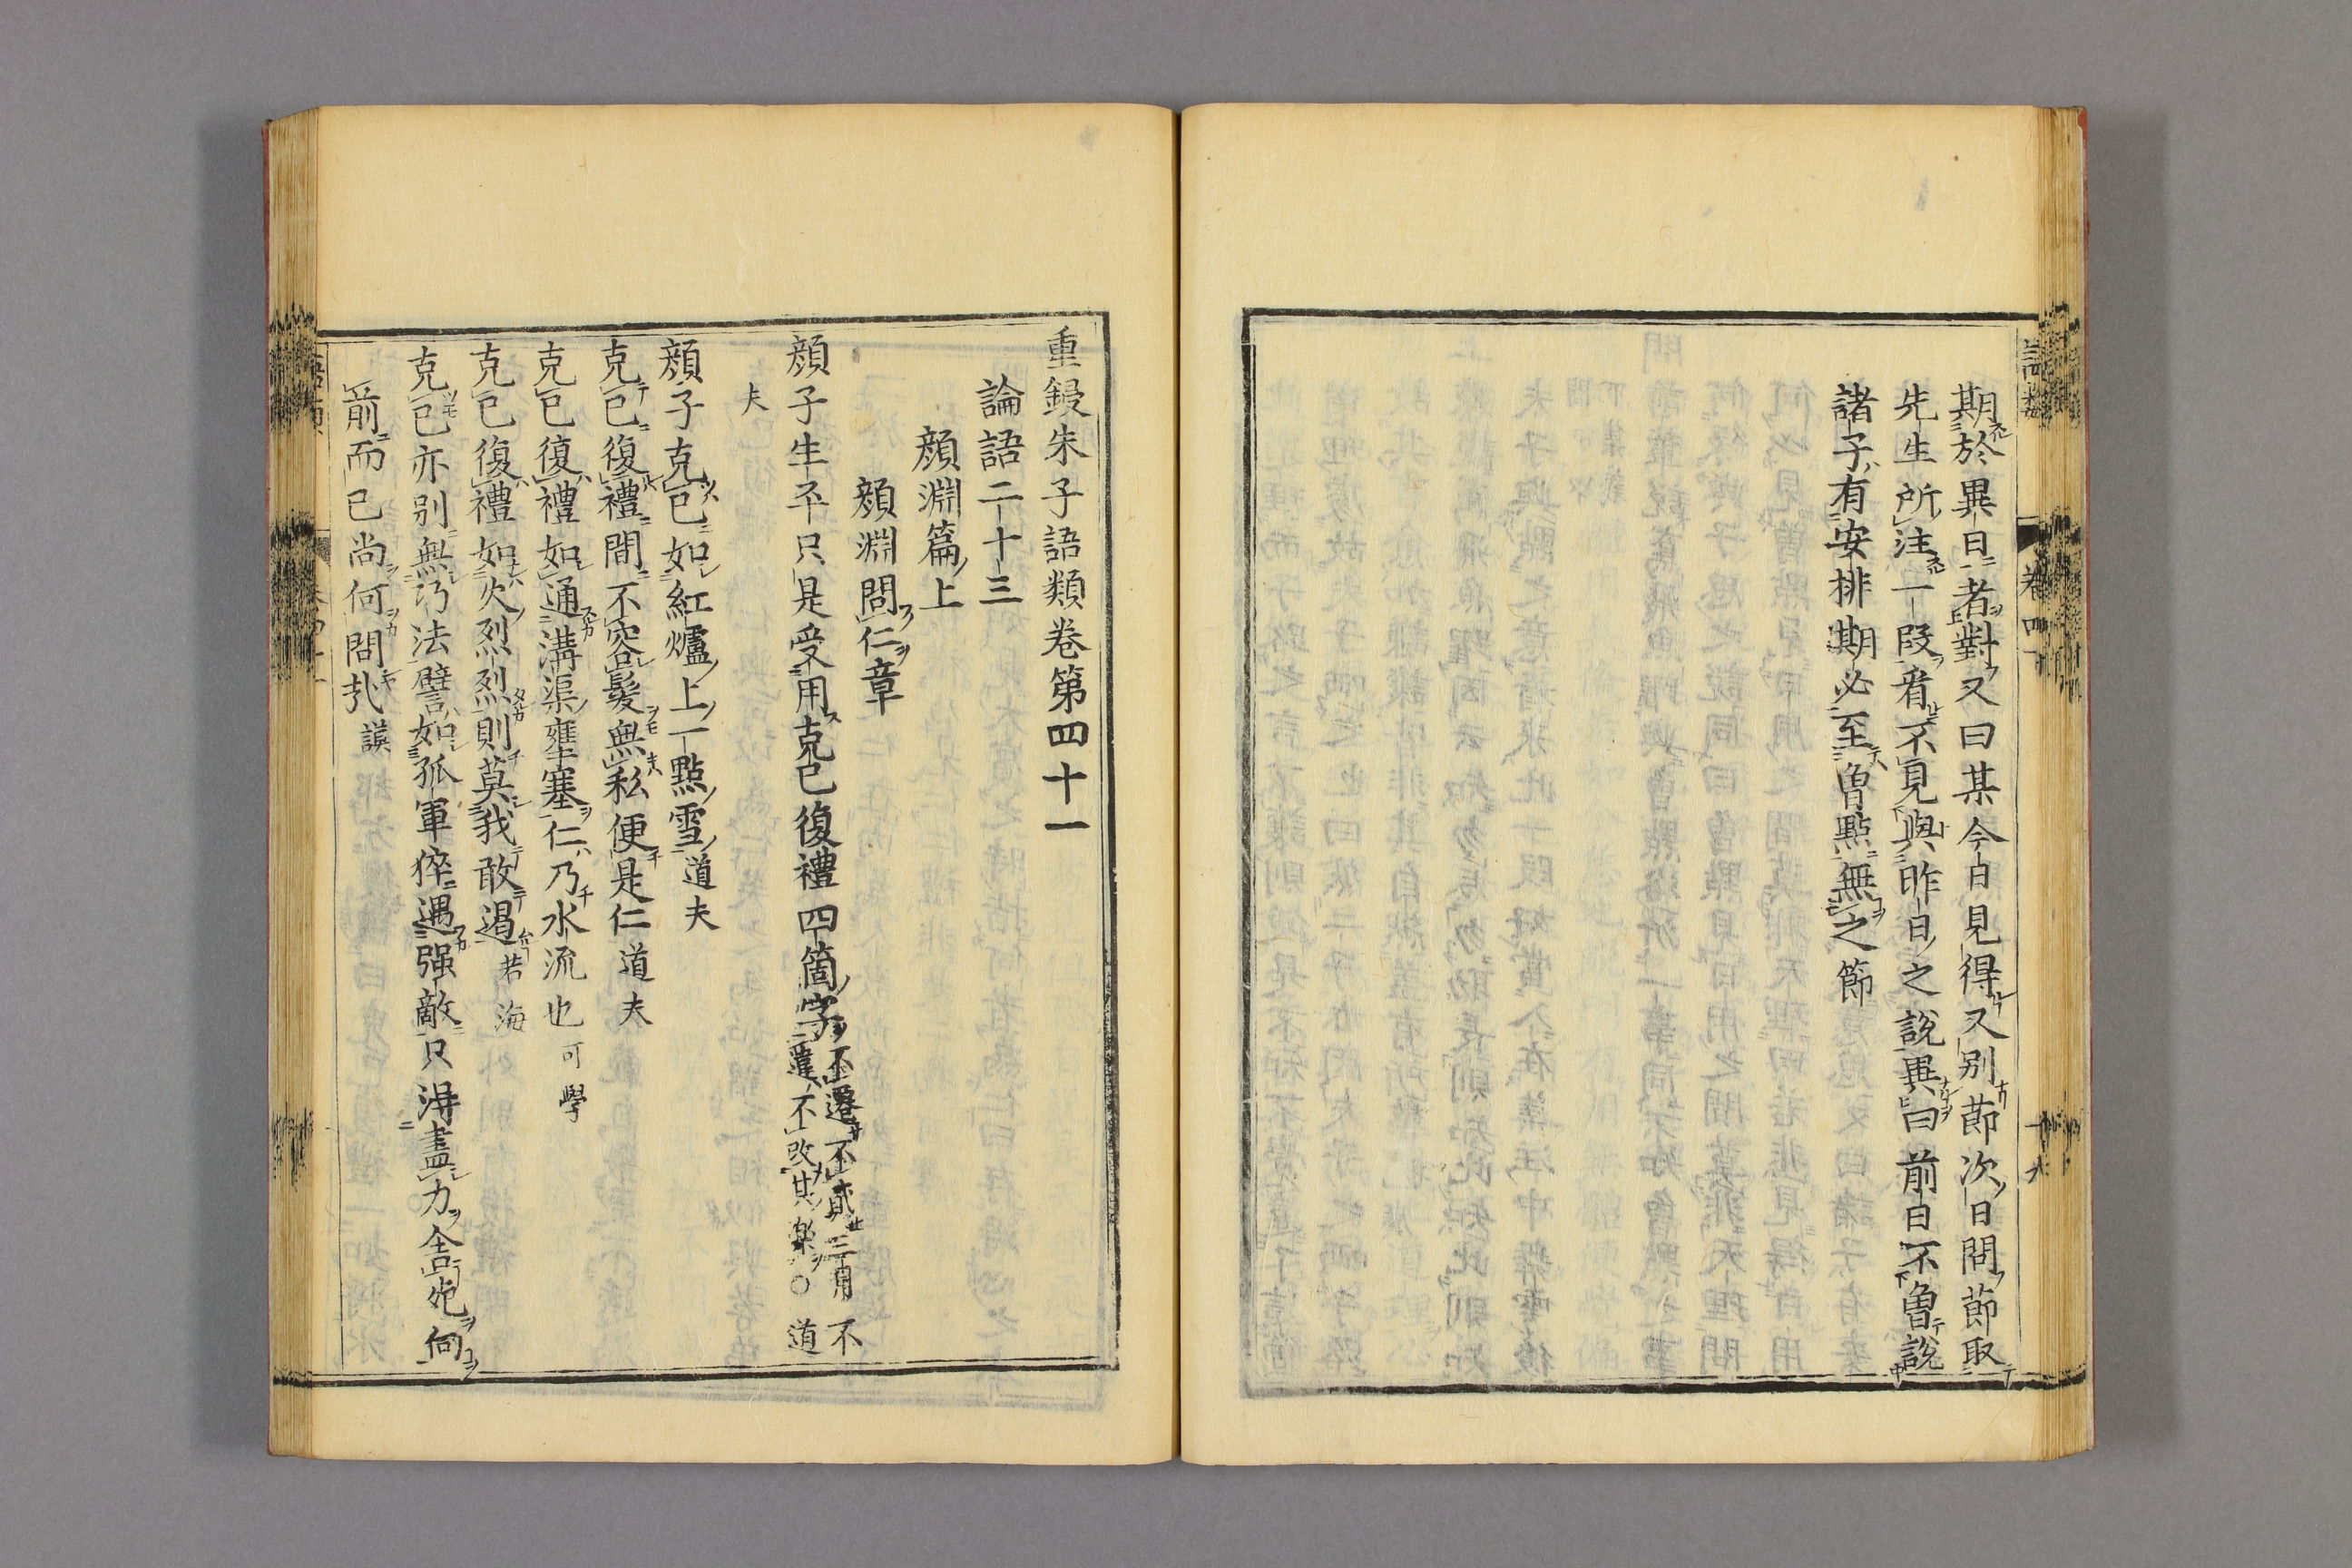 期於異日者對又曰某今日見得又別節次日問節取
先生所注一段看不見與昨日之說異曰前日不曾說
諸子有安排期必至曾點無之節
重鋟朱子語類卷第四十一
論語二十三
顔淵篇上
顔淵問仁章
顔子生平只是受用克己復禮四箇字不遷不貳三月不違不改其樂○道
夫
顔子克己如紅爐上一點雪道夫
克己復禮間不容髮無私便是仁道夫
克已復禮如通溝渠壅塞仁乃水流也可學
克已復禮如火烈烈則莫我敢遏若海
克已亦別無巧法譬如孤軍猝遇强敵只得盡力舍死向
前而已尚何問㢤謨